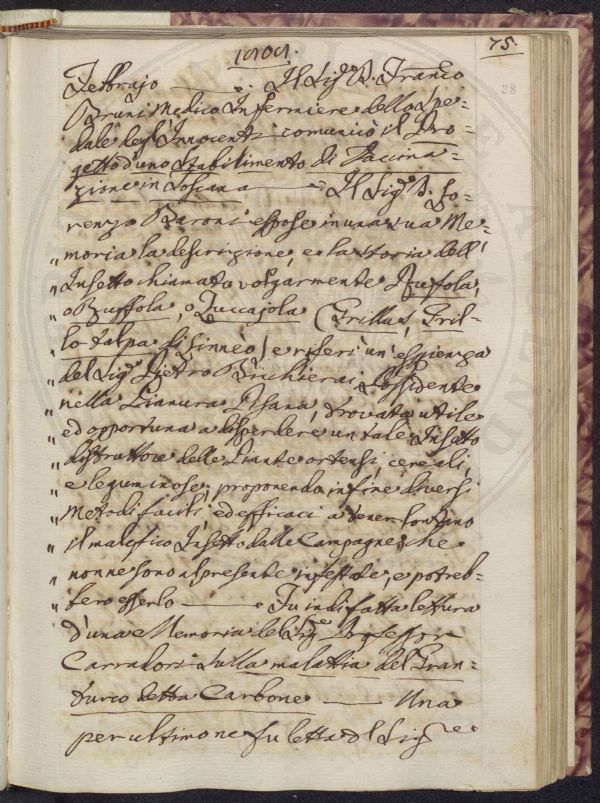 75.
38
Febbrajo — Il Sig.r D. Franco
Bruni Medico Infermiere dello Spe-
dale degl'Innocenti comunicò il Pro-
getto d'uno Stabilimento di Vaccina-
zione in Toscana — Il Sig.r D. Lo-
renzo Baroni espose in una sua Me-
„ moria la descrizione, e la storia dell'
„ Insetto chiamato volgarmente Rufola,
„ o Zuffola, o Zuccajola (Grillus, Gril-
„ lo-talpa di Linnèo) e riferì un'esperienza
„ del Sig.r Pietro Bicchierai Possidente
„ nella Pianura Pisana, trovata utile
„ ed opportuna a disperdere un tale Insetto
„ distruttore delle Piante ortensi, cereali,
„ e leguminose, proponendo infine diversi
„ Metodi facili ed efficaci a tener lontano
„ il malefico Insetto dalle Campagne, che
„ non ne sono al presente infestate, e potreb-
„ bero esserlo — Fu indi fatta lettura
d'una Memoria del Sig.re Professor
Carradori sulla malattia del Gran-
turco detta Carbone — Una
per ultimo ne fu letta del Sig.re